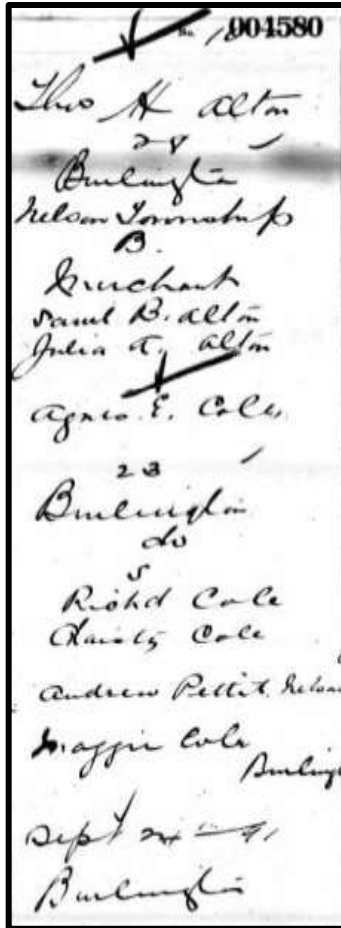 No. 004580
Theo H Alton
28
Burlington
Nelson Township
B.
Merchant
Saml B. Alton
Julia A. Alton
Agnes E. Cole
23
Burlington
do
S
Richd Cole
Christy Cole
Andrew Pettit. Nelson
Maggie Cole
Burling
Sept 24th 91
Burlington